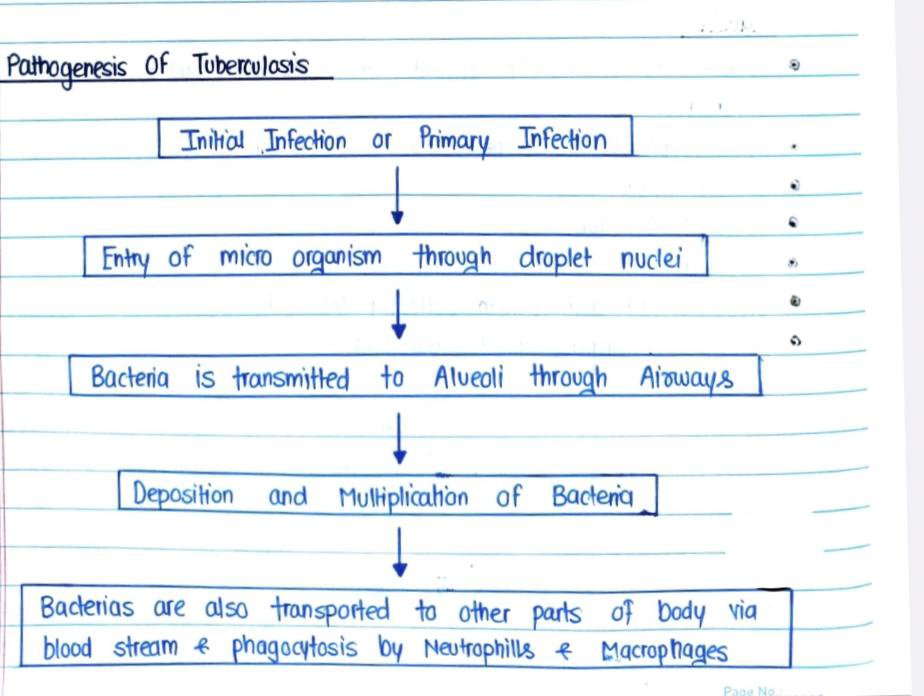 Pathogenesis Of Tuberculosis
Initial Infection or Primary Infection
Entry of micro organism through droplet nuclei
Bacteria is transmitted to Alveoli through Airways
Deposition and Multiplication of Bacteria
Bacterias are also transported to other parts of body via
blood stream & phagocytosis by Neutrophills & Macrophages
Page No.: